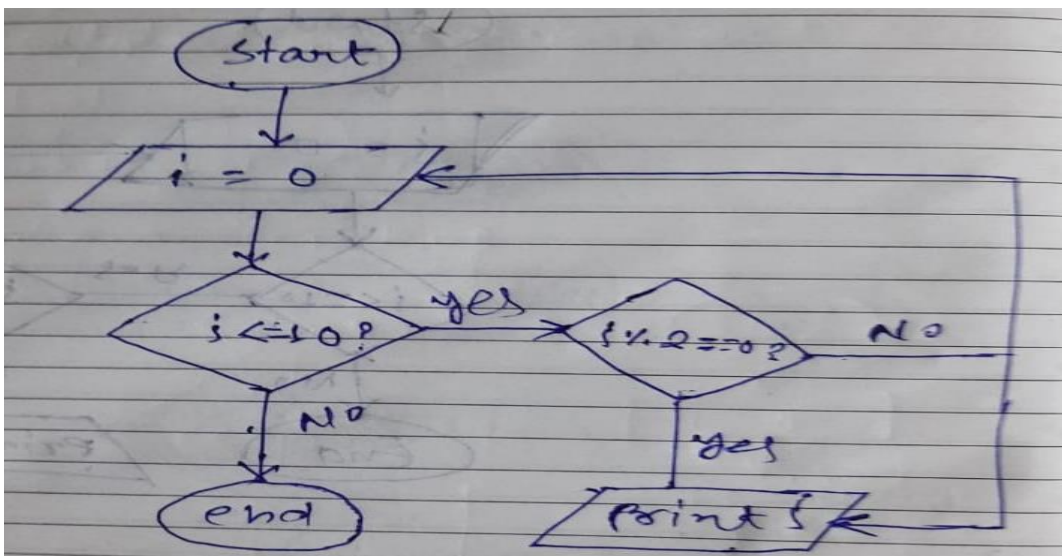 Start
i = 0
i <= 10?
yes
i % 2 == 0?
No
No
yes
end
Print i